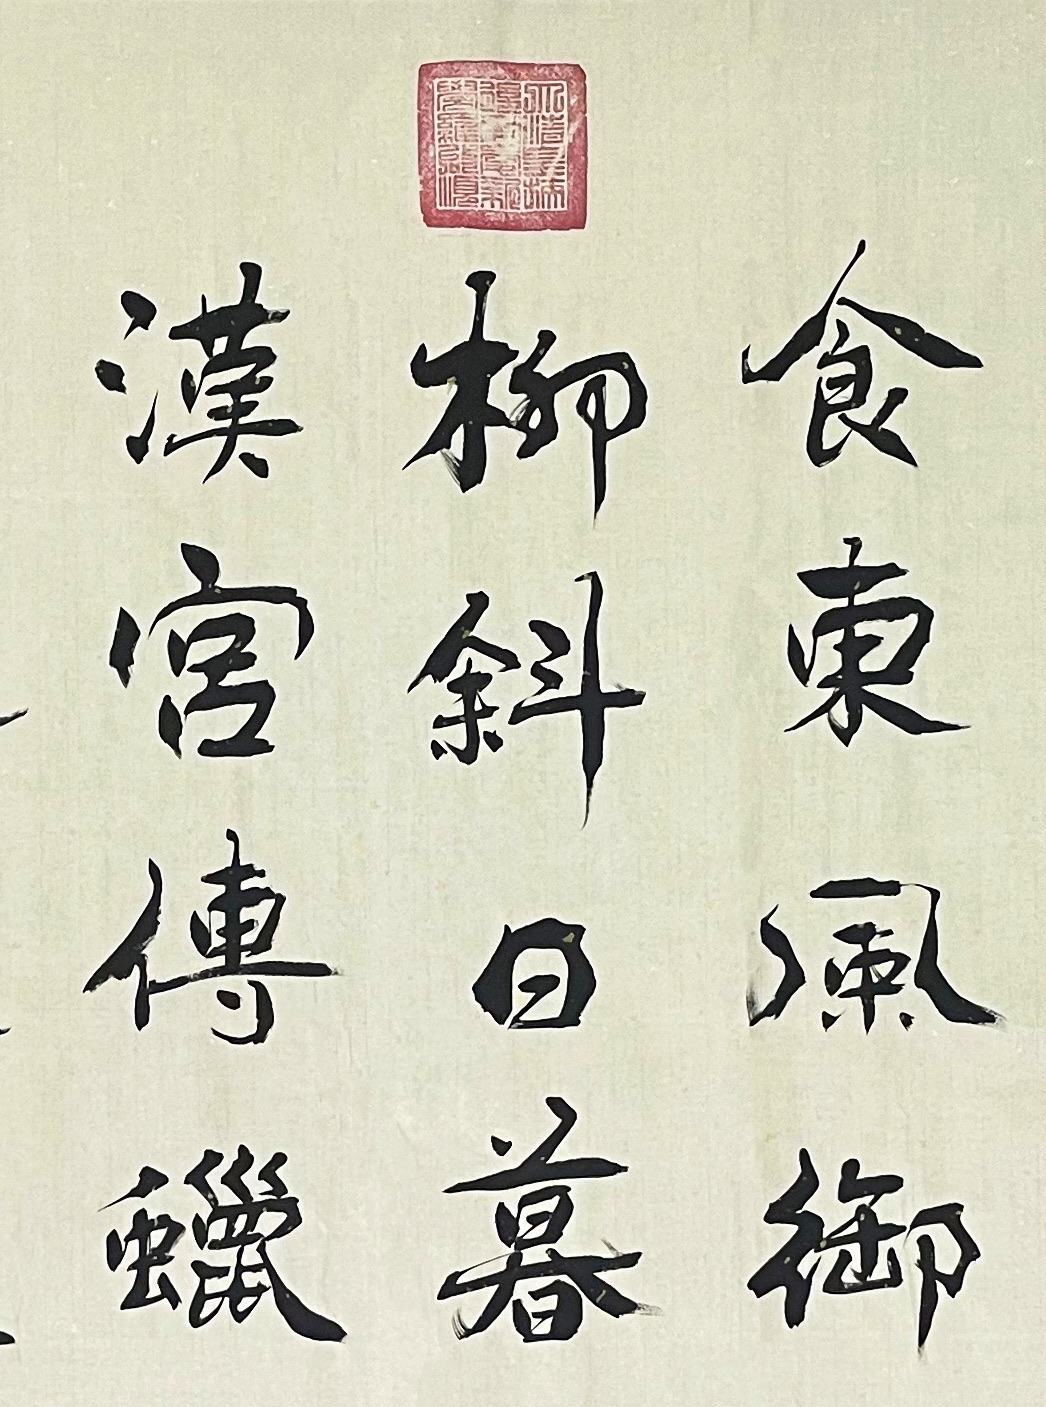 食東風御
柳斜日暮
漢宮傳蠟